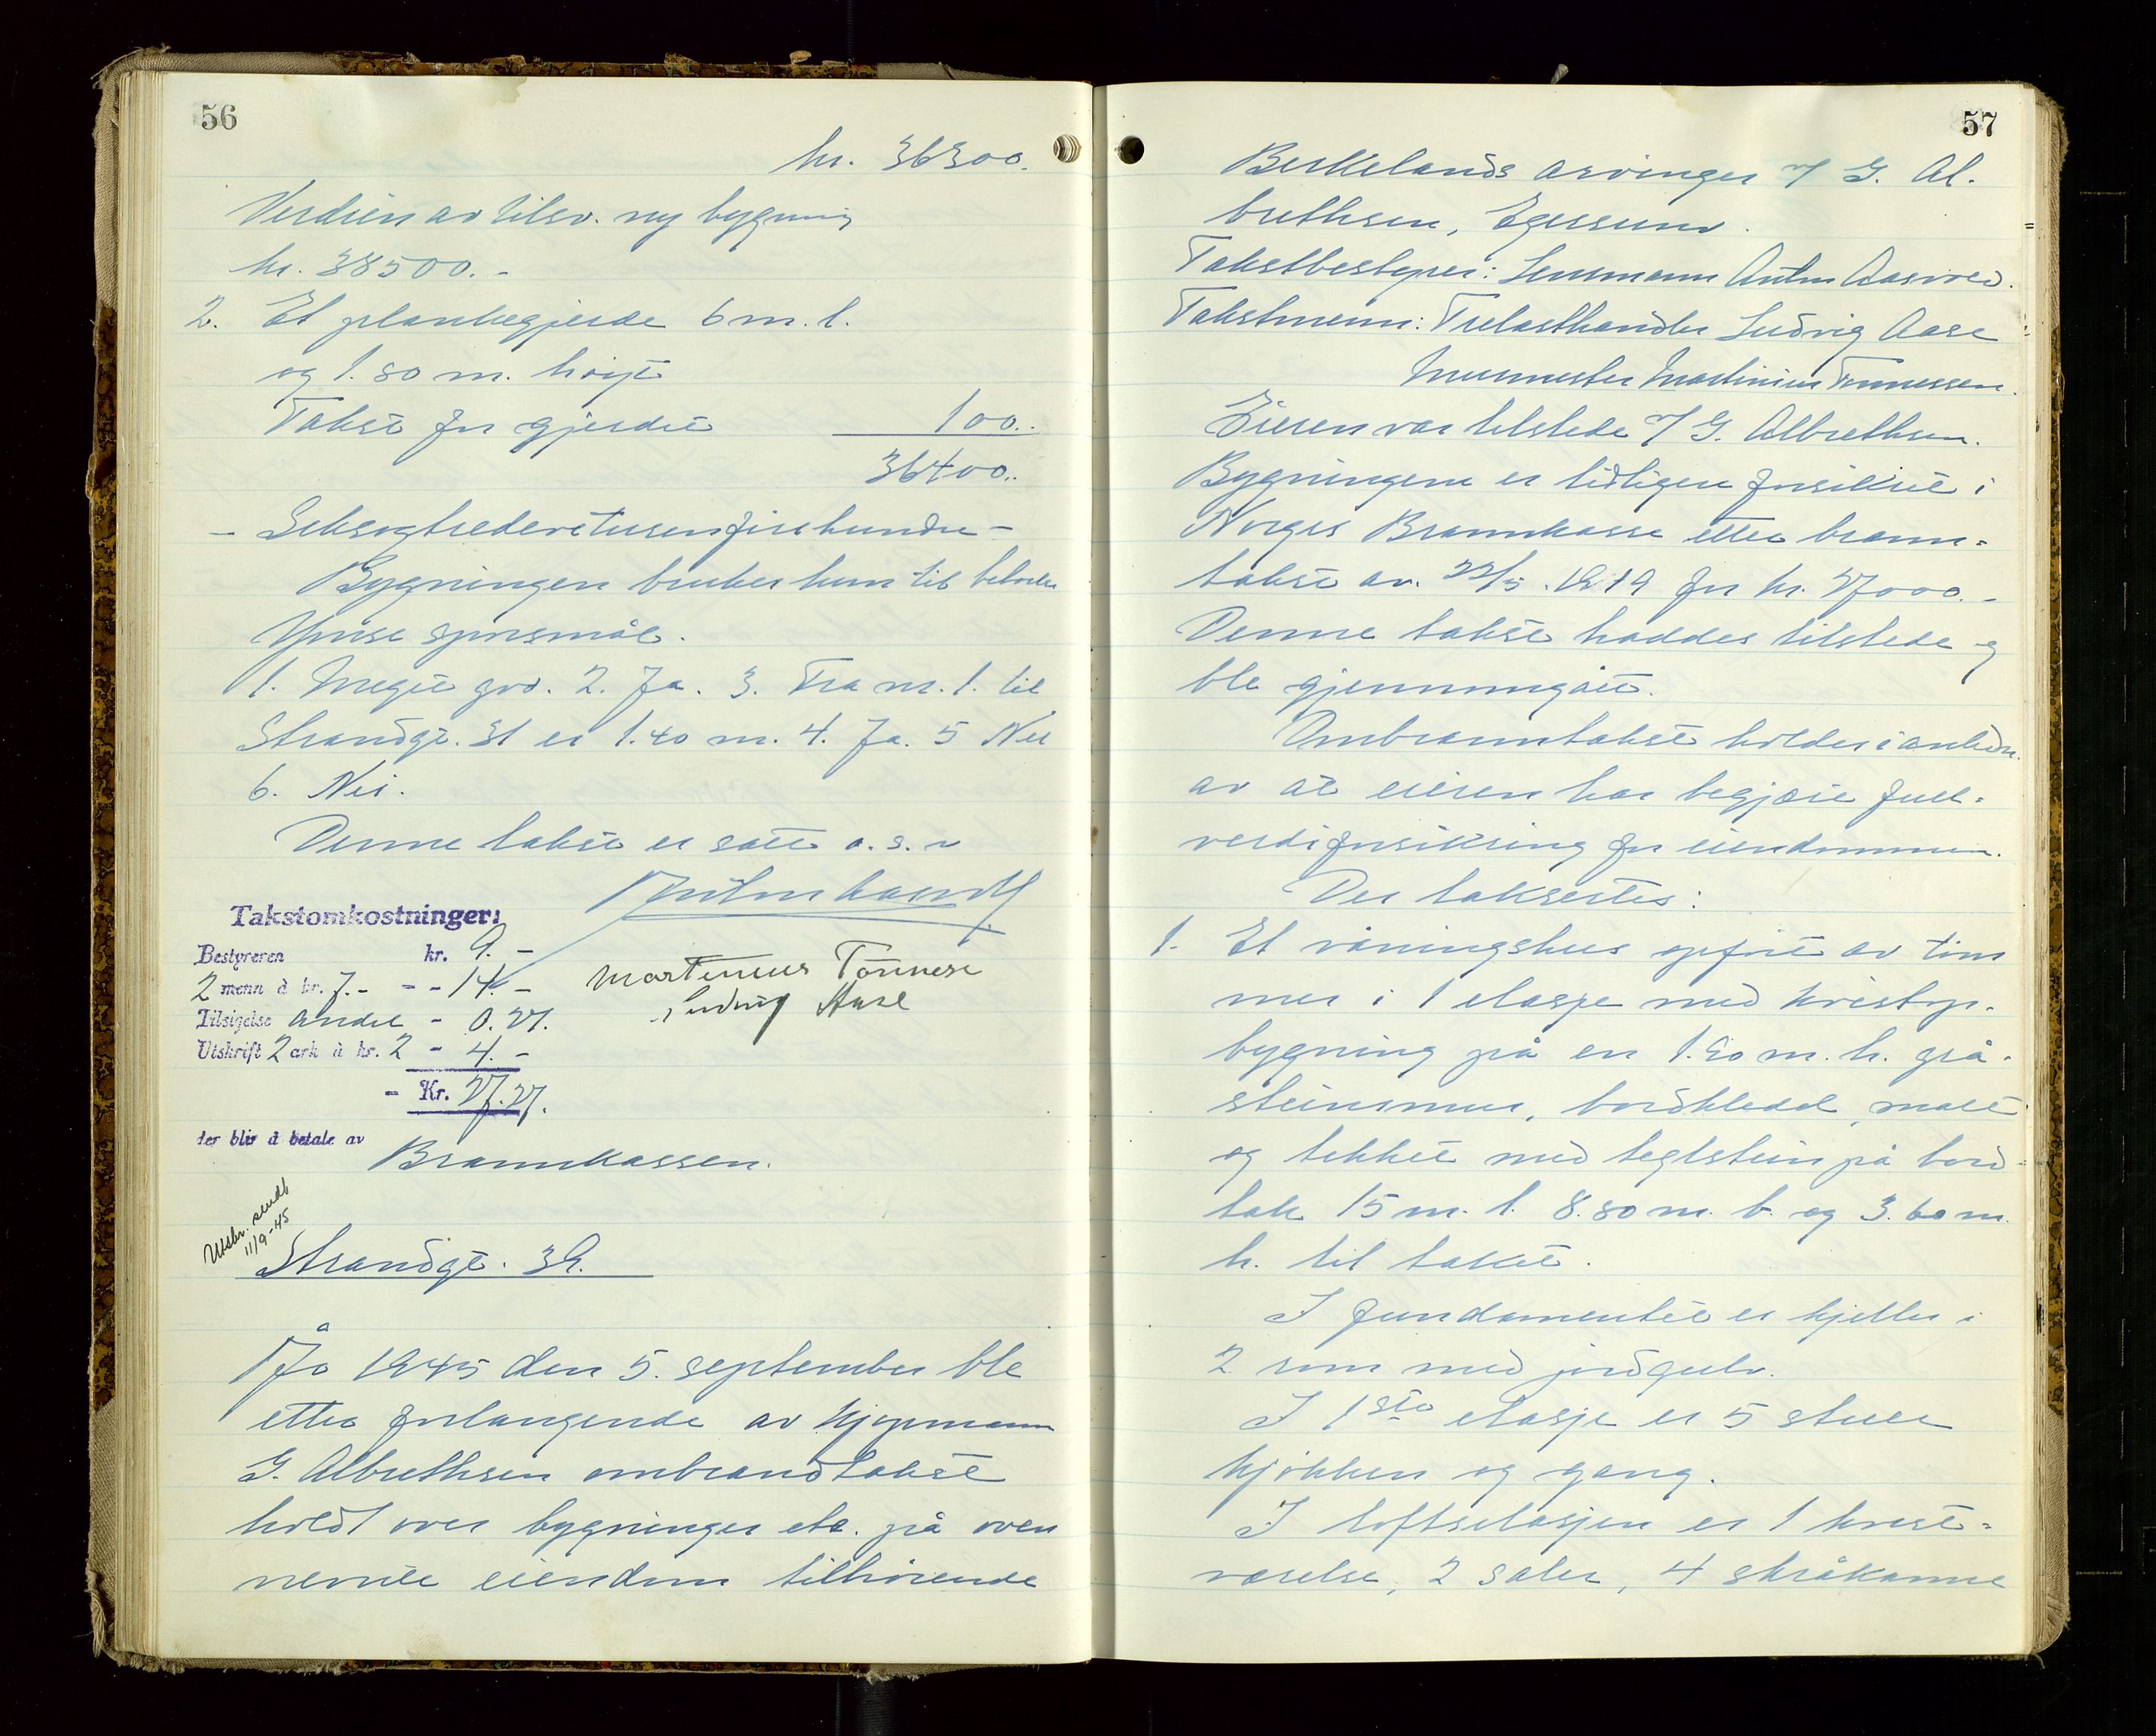 56
kr. 36300.
Verdien av tilsv. ny bygning
kr. 38500.-
2. Et plankegjerde 6 m. l.
og 1.80 m. høyt
Takst for gjerdet 100..
36400..
- Seksogtredevetusenfirehundre -
Bygningen brukes kun til beboelse
Ymse spørsmål.
1. Meget god. 2. Ja. 3. Fra nr. 1. til
Strandgt. 31 er 1.40 m. 4. Ja. 5 Nei
6. Nei.
Denne takst er satt o. s. v
Takstomkostninger:
Bestyreren kr. 9.-
2 menn à kr. 7.- - - 14.-
Martinius Tønnesen
Tilsigelse andel - 0.27.
Ludvig Aase
Utskrift 2 ark à kr. 2 - 4.-
- Kr. 27.27.
der blir å betale av Brannkassen.
Utskr. sendt
11/9-45
Strandgt. 39.
År 1945 den 5. september ble
etter forlangende av kjøpmann
G. Albrethsen ombrandtakst
holdt over bygninger etc. på oven
nevnte eiendom tilhørende
57
Berkelands arvinger v/ G. Al-
brethsen, Egersund.
Takstbestyrer: Lensmann Anton Aasved.
Takstmenn: Trelasthandler Ludvig Aase
Murmester Martinius Tønnessen.
Eieren var tilstede v/ G. Albrethsen.
Bygningene er tidligere forsikret i
Norges Brannkasse etter brann=
takst av. 22/5. 1919 for kr. 27000.-
Denne takst haddes tilstede og
ble gjennomgått.
Ombranntakst holdes i anledn.
av at eieren har begjært full=
verdiforsikring for eiendommen.
Der taksertes:
1. Et våningshus opført av tøm
mer i 1 etasje med kvistop-
bygning på en 1.20 m. h. grå-
steinsmur, bordkledd, malt
og tekket med teglstein på bord=
tak 15 m. l. 8.80 m. b. og 3.60 m.
h. til taket.
I fundamentet er kjeller i
2 rom med jordgulv.
I 1ste etasje er 5 stuer
kjøkken og gang.
I loftsetasjen er 1 kvist=
værelse, 2 saler, 4 skråkamre